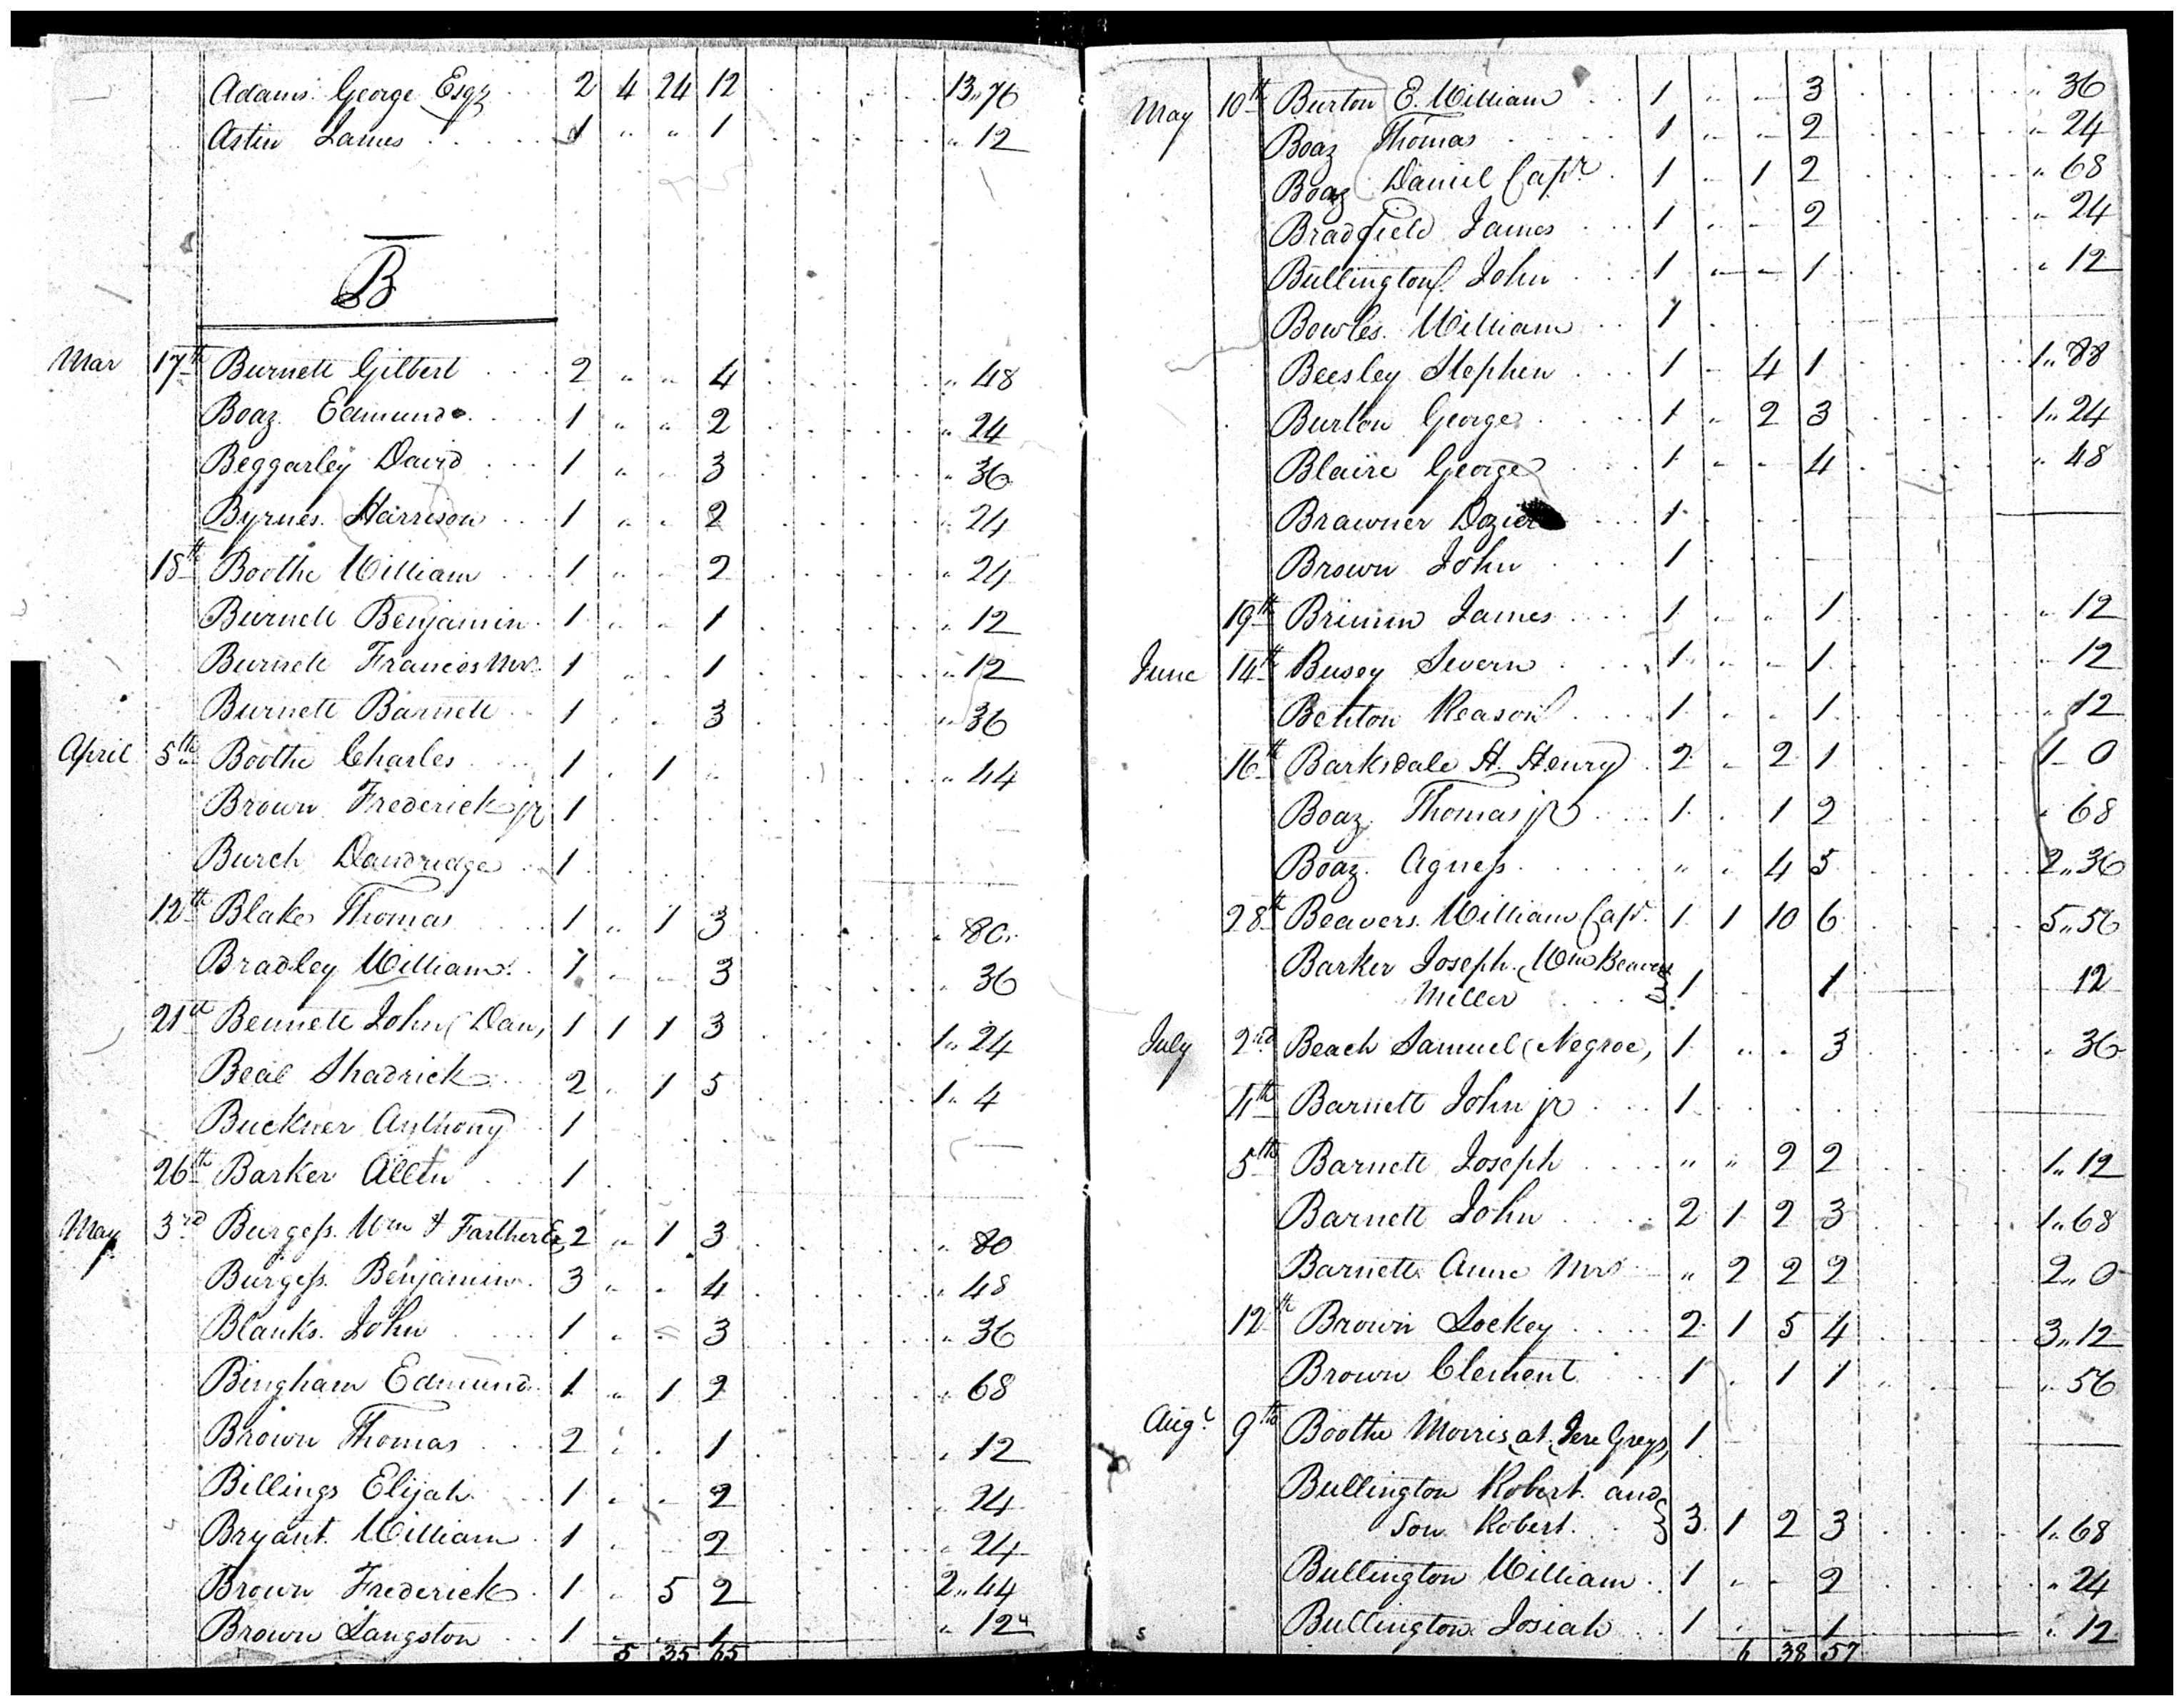 Adams George Esqr 2 4 24 12 13,,76
Astin James 1 " " 1 " 12
B
Mar 17th Burnett Gilbert 2 " " 4 " 48
Boaz Edmund 1 " " 2 " 24
Beggarley David 1 " " 3 " 36
Byrnes Harrison 1 " " 2 " 24
18th Boothe William 1 " " 2 " 24
Burnett Benjamin 1 " " 1 " 12
Burnett Frances Mrs 1 " " 1 " 12
Burnett Barnett 1 " " 3 " 36
April 5th Boothe Charles 1 " 1 " " 44
Brown Frederick jr 1
Burch Dandridge 1
12th Blake Thomas 1 " 1 3 " 80
Bradley William 1 " " 3 " 36
21st Bennett John (Dan, 1 1 1 3 1,, 24
Beal Shadrick 2 " 1 5 1,, 4
Buckner Anthony 1
26th Barker Allen 1
May 3rd Burgess Wm & Farther E, 2 " 1 3 " 80
Burgess Benjamin 3 " " 4 " 48
Blanks John 1 " " 3 " 36
Bingham Edmund 1 " 1 2 " 68
Brown Thomas 2 " " 1 " 12
Billings Elijah 1 " " 2 " 24
Bryant William 1 " " 2 " 24
Brown Frederick 1 " 5 2 2,,44
Brown Langston 1 " " 1 " 12
5 35 65
May 10th Burton E. William 1 " " 3 " 36
Boaz Thomas 1 " " 2 " 24
Boaz Daniel Capt. 1 " 1 2 " 68
Bradfield James 1 " " 2 " 24
Bullington John 1 " " 1 " 12
Bowles William 1
Beesley Stephen 1 " 4 1 1,,88
Burton George 1 " 2 3 1,,24
Blaire George 1 " " 4 " 48
Brawner Dozier 1
Brown John 1
19th Brimm James 1 " " 1 " 12
June 14th Busey Severn 1 " " 1 " 12
Benton Reason 1 " " 1 " 12
16th Barksdale H. Henry 2 " 2 1 1 0
Boaz Thomas jr 1 " 1 2 " 68
Boaz Agness " " 4 5 2,,36
28th Beavers William Capt. 1 1 10 6 5,,56
Barker Joseph (Wm Beavers
Miller 1 1 12
July 2nd Beach Samuel (Negroe, 1 " " 3 " 36
4th Barnett John jr 1
5th Barnett Joseph " " 2 2 1,,12
Barnett John 2 1 2 3 1,,68
Barnett Anne Mrs " 2 2 2 2,,0
12th Brown Lockey 2 1 5 4 3,,12
Brown Clement 1 " 1 1 " 56
Augt 9th Boothe Morris at Jere Greys, 1
Bullington Robert and
Son Robert 3 1 2 3 1,,68
Bullington William 1 " " 2 " 24
Bullington Josiah 1 " " 1 " 12
6 38 57